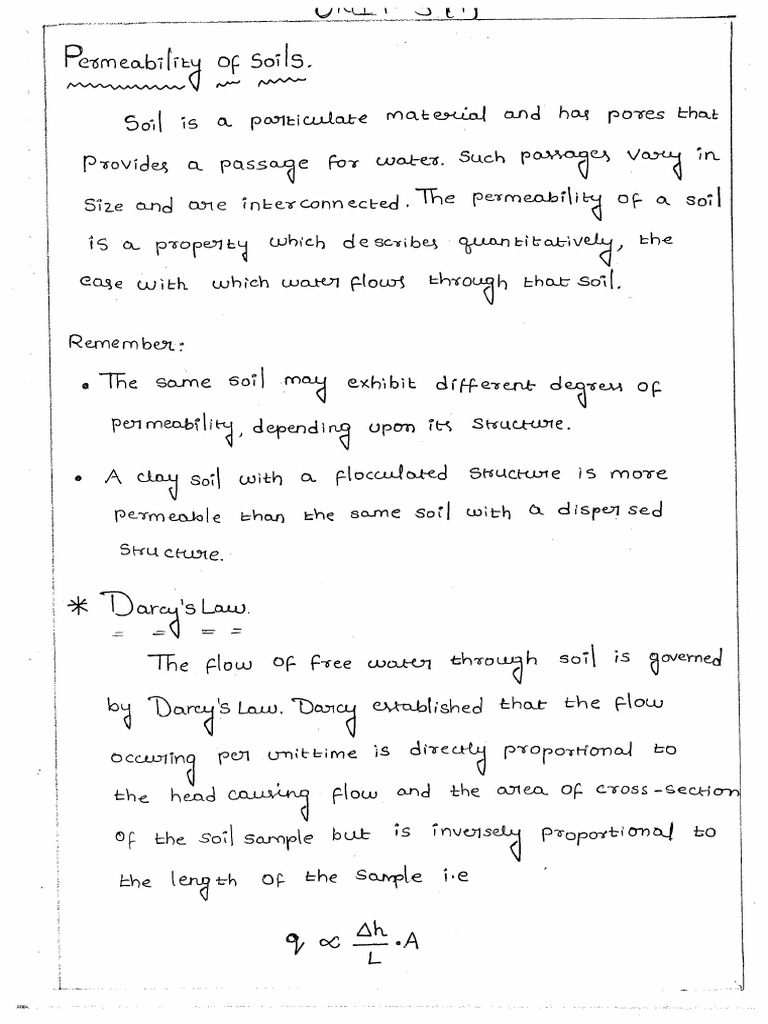 Permeability of Soils.
Soil is a particulate material and has pores that
Provides a passage for water. Such passages vary in
Size and are interconnected. The permeability of a soil
is a property which describes quantitatively, the
ease with which water flows through that soil.
Remember:
• The same soil may exhibit different degress of
permeability, depending upon its structure.
• A clay soil with a flocculated structure is more
permeable than the same soil with a dispersed
structure.
* Darcy's Law.
The flow of free water through soil is governed
by Darcy's Law. Darcy established that the flow
occuring per unit time is directly proportional to
the head causing flow and the area of cross-section
of the soil sample but is inversely proportional to
the length of the sample i.e
q ∝ Δh/L . A